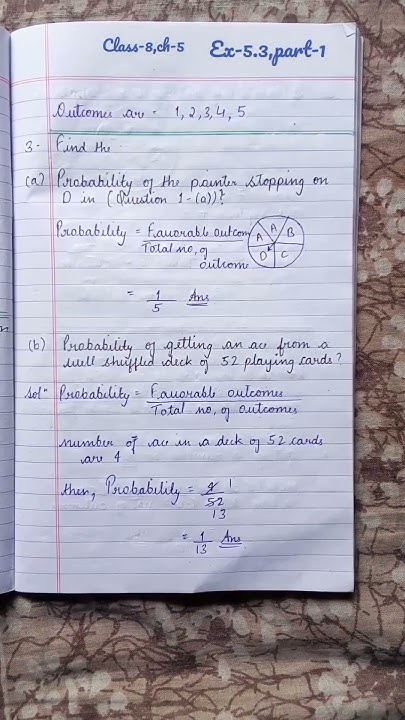 Class-8,ch-5 Ex-5.3,part-1
Outcomes are - 1, 2, 3, 4, 5
3. Find the
(a) Probability of the pointer stopping on
D in (Question 1-(a))?
Probability = Favorable outcom
Total no, of
outcome
A A B
D C
= 1
5 Ans
(b) Probability of getting an ace from a
well shuffled deck of 52 playing cards?
solⁿ Probability = Favorable outcomes
Total no, of outcomes
number of ace in a deck of 52 cards
are 4
then, Probability = 4 1
52
13
= 1 Ans
13